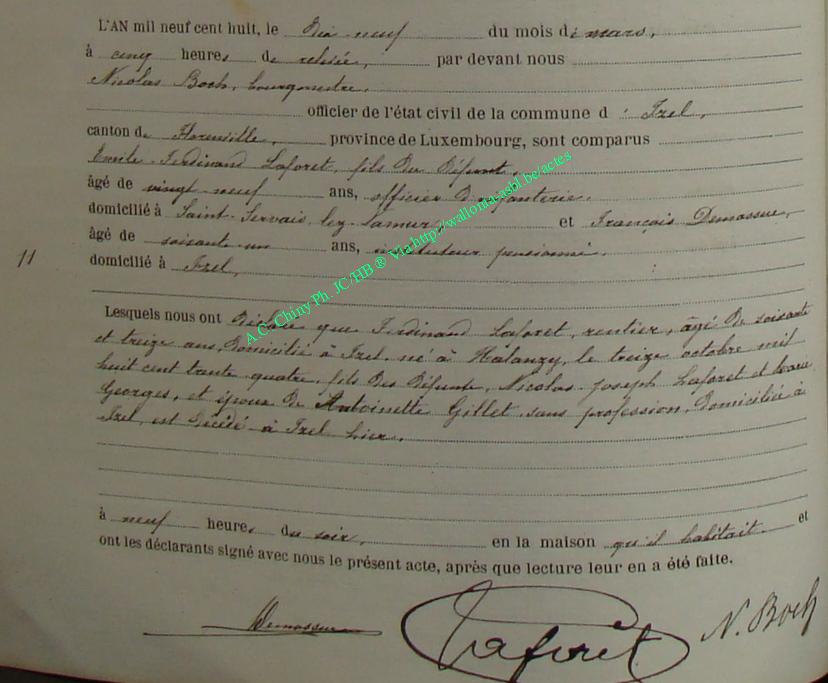 L'AN mil neuf cent huit, le Dix neuf du mois de mars,
à cinq heures de relevée, par devant nous
Nicolas Boch, bourgmestre,
officier de l'état civil de la commune d'Izel,
canton de Florenville, province de Luxembourg, sont comparus
Emile Ferdinand Laforet, fils du Défunt,
âgé de vingt neuf ans, officier d'infanterie,
domicilié à Saint-Servais lez Namur, et François Demassue,
âgé de soixante un ans, instituteur pensionné,
11
domicilié à Izel,
Lesquels nous ont Déclaré que Ferdinand Laforet, rentier, âgé De soixante
et treize ans, Domicilié à Izel, né à Halanzy, le treize octobre mil
huit cent trente quatre, fils Des Défunts, Nicolas Joseph Laforet et
Georges, et époux De Antoinette Gillet, sans profession, Domiciliée à
Izel, est Décédé à Izel hier,
à neuf heures du soir, en la maison qu'il habitait et
ont les déclarants signé avec nous le présent acte, après que lecture leur en a été faite.
Demassue Laforêt N. Boch
A.G. Chiny Ph. JC/HB ® Via http://wallonia-asbl.be/actes